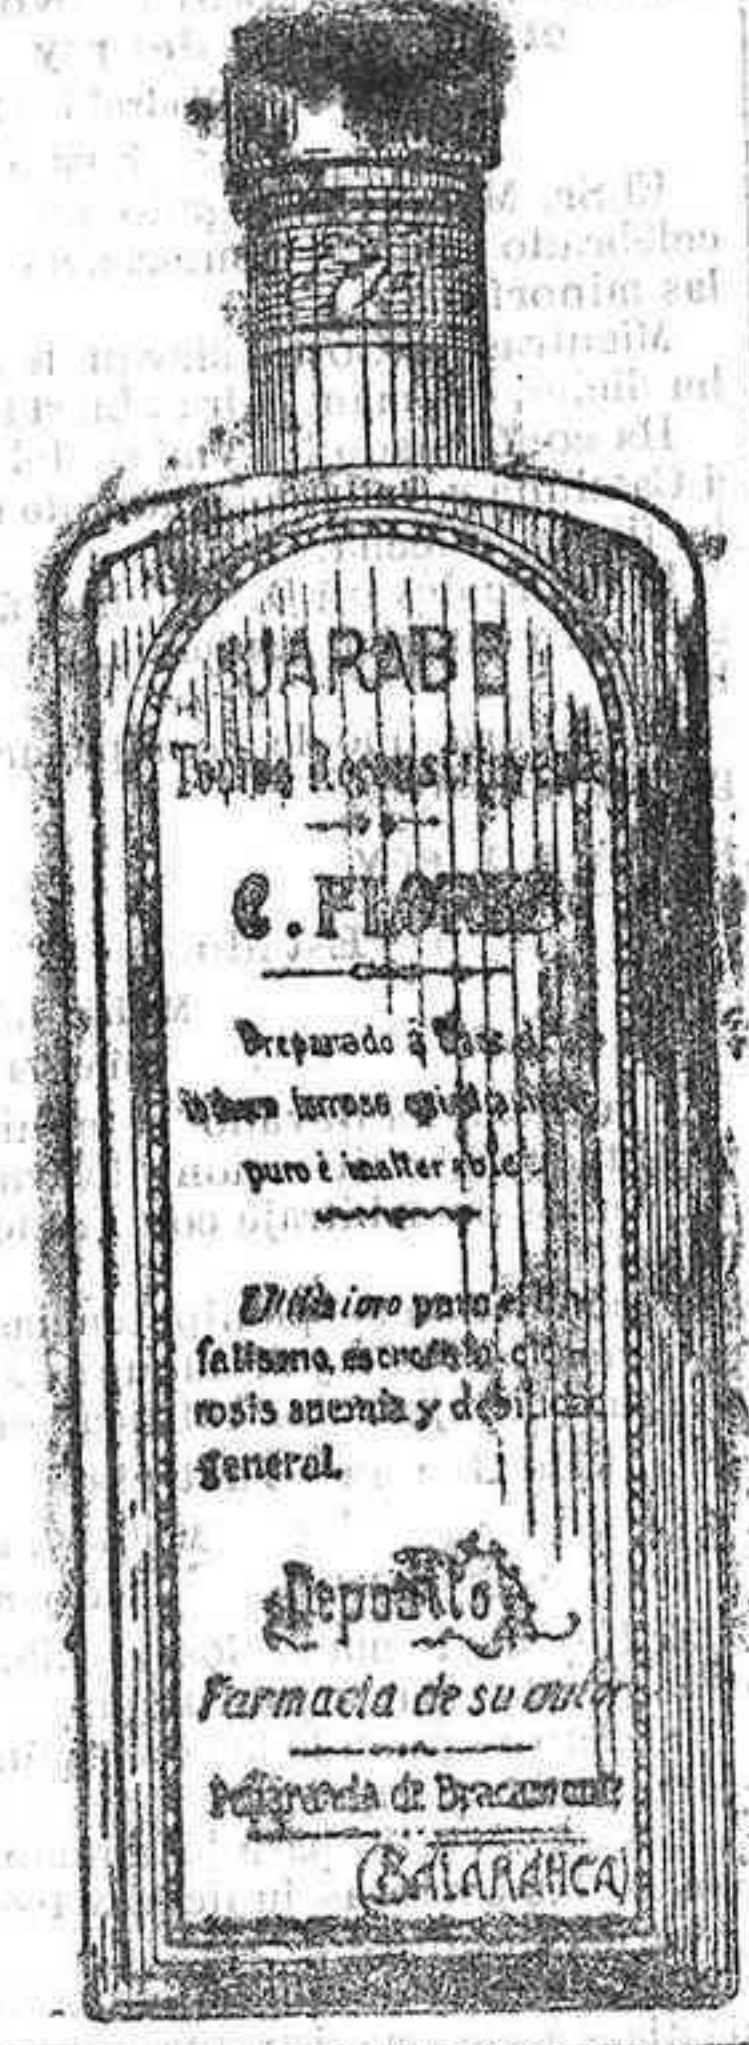 JARABE
Tónico Reconstituyente
C. FLORES
Preparado á base de
ioduro ferroso químicamente
puro é inalterable
Utilísimo para el
falismo, escrófula, clo-
rosis anemia y debilidad
general.
Deposito
Farmacia de su autor
Peñaranda de Bracamonte
(SALAMANCA)